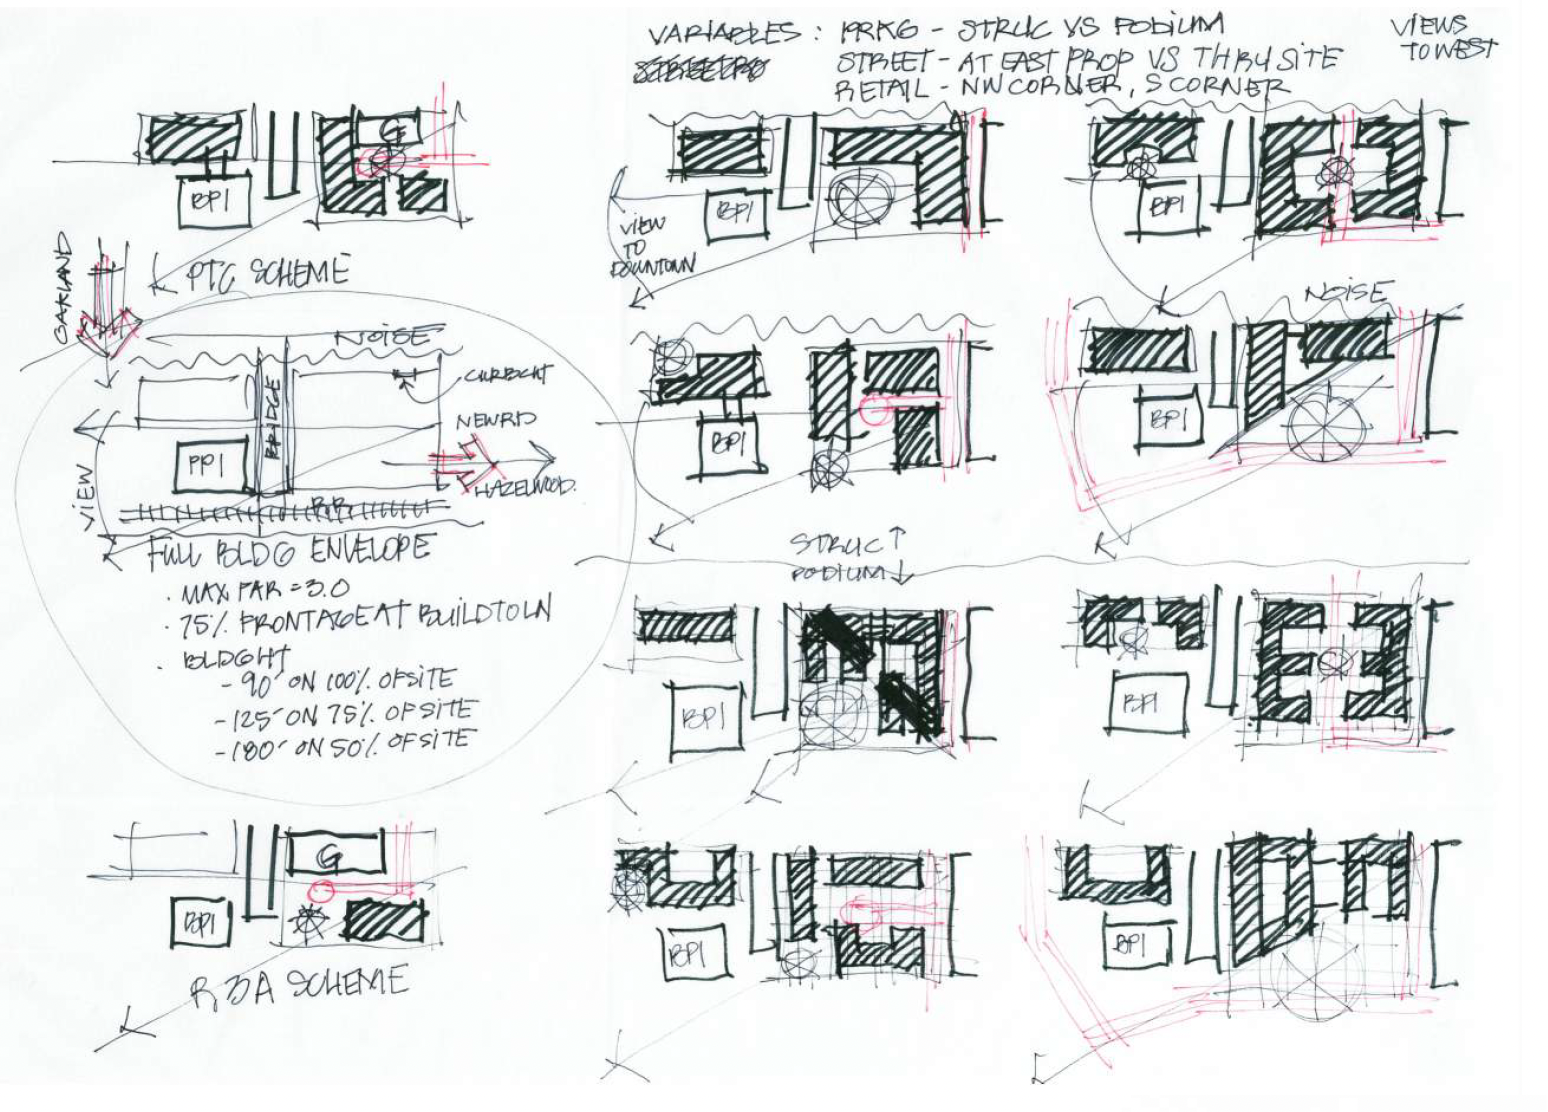 VARIABLES: PRKG - STRUC VS PODIUM
STREET - AT EAST PROP VS THRU SITE
RETAIL - NW CORNER, S CORNER
VIEWS
TO WEST
G
BPI
PTC SCHEME
OAKLAND
NOISE
CURRENT
BRIDGE
NEW RD
BPI
HAZELWOOD.
VIEW
R.R.
FULL BLDG ENVELOPE
· MAX FAR = 3.0
· 75% FRONTAGE AT BUILD TO LN
· BLDG HT
- 90' ON 100% OF SITE
- 125' ON 75% OF SITE
- 180' ON 50% OF SITE
G
BPI
R3A SCHEME
BPI
VIEW
TO
DOWNTOWN
BPI
NOISE
BPI
BPI
STRUC ↑
PODIUM ↓
BPI
BPI
BPI
BPI